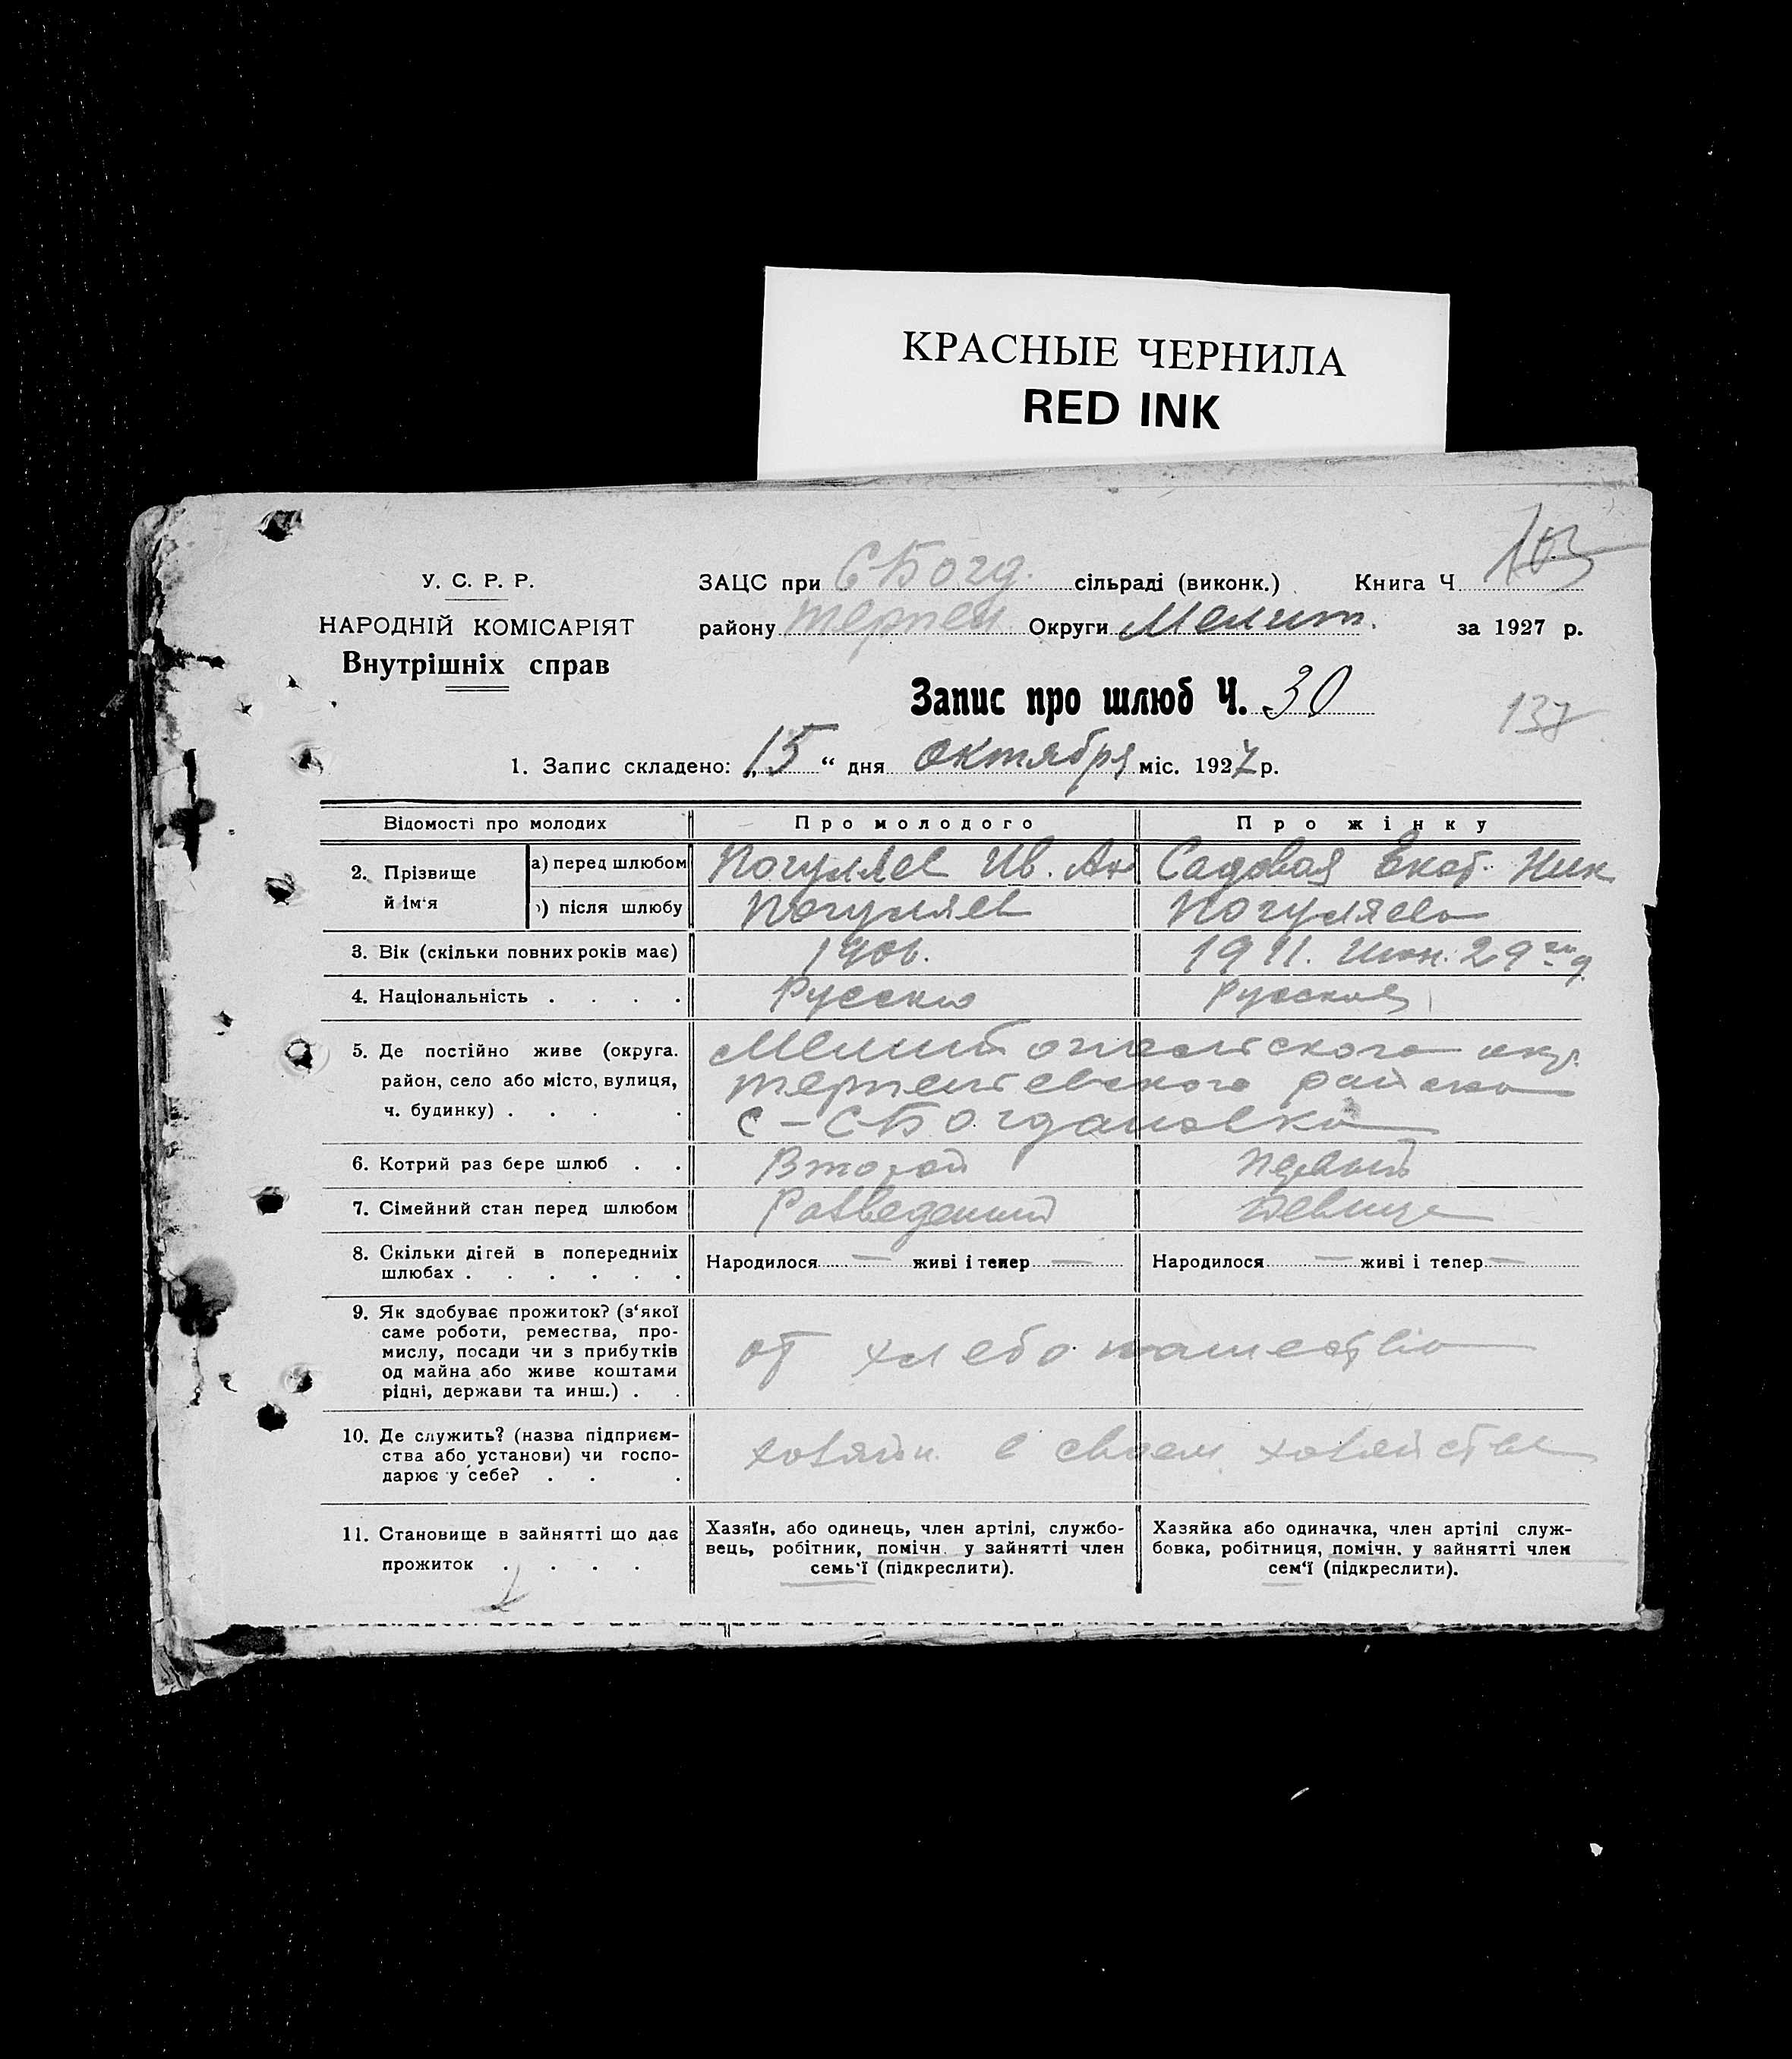 КРАСНЫЕ ЧЕРНИЛА
RED INK
У. С. Р. Р.
НАРОДНІЙ КОМІСАРІЯТ
Внутрішніх справ
ЗАЦС при СБогд. сільраді (виконк.) Книга Ч 103
району терпен Округи Мелит. за 1927 р.
Запис про шлюб Ч. 30
137
1. Запис складено: „15“ дня октября міс. 1927 р.
Відомості про молодих Про молодого Про жінку
2. Прізвище й ім‘я
а) перед шлюбом Погуляев Ив. Ан Садовая Екат. Ник
б) після шлюбу Погуляев Погуляева
3. Вік (скільки повних років має) 1906. 1911. Июн. 29
4. Національність . . . . Русский Русская
5. Де постійно живе (округа. Мелитопольского окр.
район, село або місто, вулиця, терпеньевского района
ч. будинку) . . . . с-СБогдановка
6. Котрий раз бере шлюб . . Второй первый
7. Сімейний стан перед шлюбом Разведенный девица
8. Скільки дітей в попередниїх Народилося — живі і тепер — Народилося — живі і тепер —
шлюбах . . . . . .
9. Як здобуває прожиток? (з‘якої
саме роботи, ремества, про-
мислу, посади чи з прибутків от хлебопашества
од майна або живе коштами
рідні, держави та инш.) . .
10. Де служить? (назва підприєм-
ства або установи) чи госпо- хозяин. в своем хозяйстве
дарює у себе? . . .
11. Становище в зайнятті що дає
прожиток . . . .
Хазяїн, або одинець, член артілі, службо-
вець, робітник, помічн. у зайнятті член
семь‘ї (підкреслити).
Хазяйка або одиначка, член артілі служ-
бовка, робітниця, помічн. у зайнятті член
сем‘ї (підкреслити).